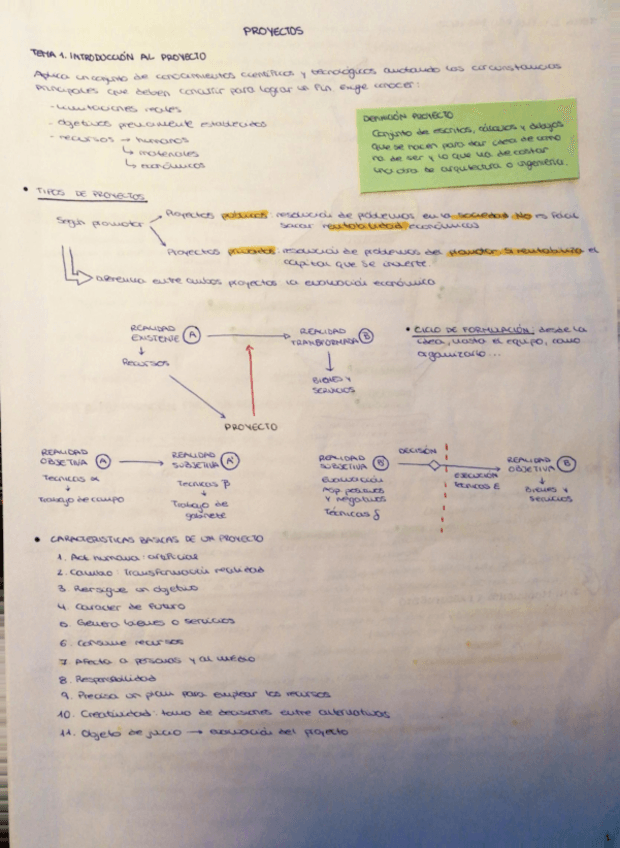 PROYECTOS
TEMA 1. INTRODUCCIÓN AL PROYECTO
Aplica un conjunto de conocimientos científicos y tecnológicos anotando las circunstancias
principales que deben concurrir para lograr un fin. Exige conocer:
- limitaciones reales
- objetivos previamente establecidos
- recursos → humanos
↳ materiales
↳ económicos
DEFINICIÓN PROYECTO
Conjunto de escritos, cálculos y dibujos
que se hacen para dar idea de como
ha de ser y lo que ha de costar
una obra de arquitectura o ingeniería.
• TIPOS DE PROYECTOS
Según promotor
Proyectos públicos: resolución de problemas en la sociedad. No es fácil
sacar rentabilidad económicos
Proyectos privados: resolución de problemas del promotor. Si rentabiliza el
capital que se invierte.
diferencia entre ambos proyectos la evaluación económica
REALIDAD
EXISTENTE A
↓
RECURSOS
REALIDAD
TRANSFORMADA B
↓
BIENES Y
SERVICIOS
PROYECTO
• CICLO DE FORMULACIÓN: desde la
idea, hasta el equipo, como
organizarlo...
REALIDAD
OBJETIVA A
Técnicas α
↓
Trabajo de campo
REALIDAD
SUBJETIVA A'
Técnicas β
↓
Trabajo de
gabinete
REALIDAD
SUBJETIVA B'
Evaluación
Asp. positivos
y negativos
Técnicas δ
DECISIÓN
EJECUCIÓN
Técnicas ε
REALIDAD
OBJETIVA B
↓
BIENES Y
SERVICIOS
• CARACTERISTICAS BASICAS DE UN PROYECTO
1. Act humana: artificial
2. Cambio: Transformación realidad
3. Persigue un objetivo
4. Caracter de futuro
5. Genera bienes o servicios
6. Consume recursos
7. Afecta a personas y al medio
8. Responsabilidad
9. Precisa un plan para emplear los recursos
10. Creatividad: toma de decisiones entre alternativas
11. Objeto de juicio → evaluación del proyecto